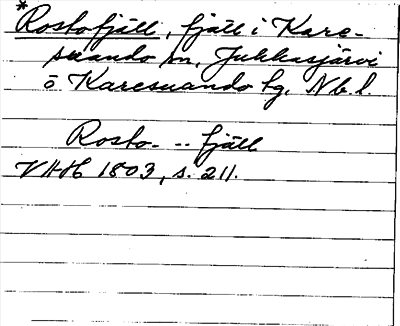 * Rostofjäll, fjäll i Kare-
suando sn, Jukkasjärvi
o Karesuando tg, Nb. l.
Rosto- -- fjäll
VHAH 1803, s. 211.